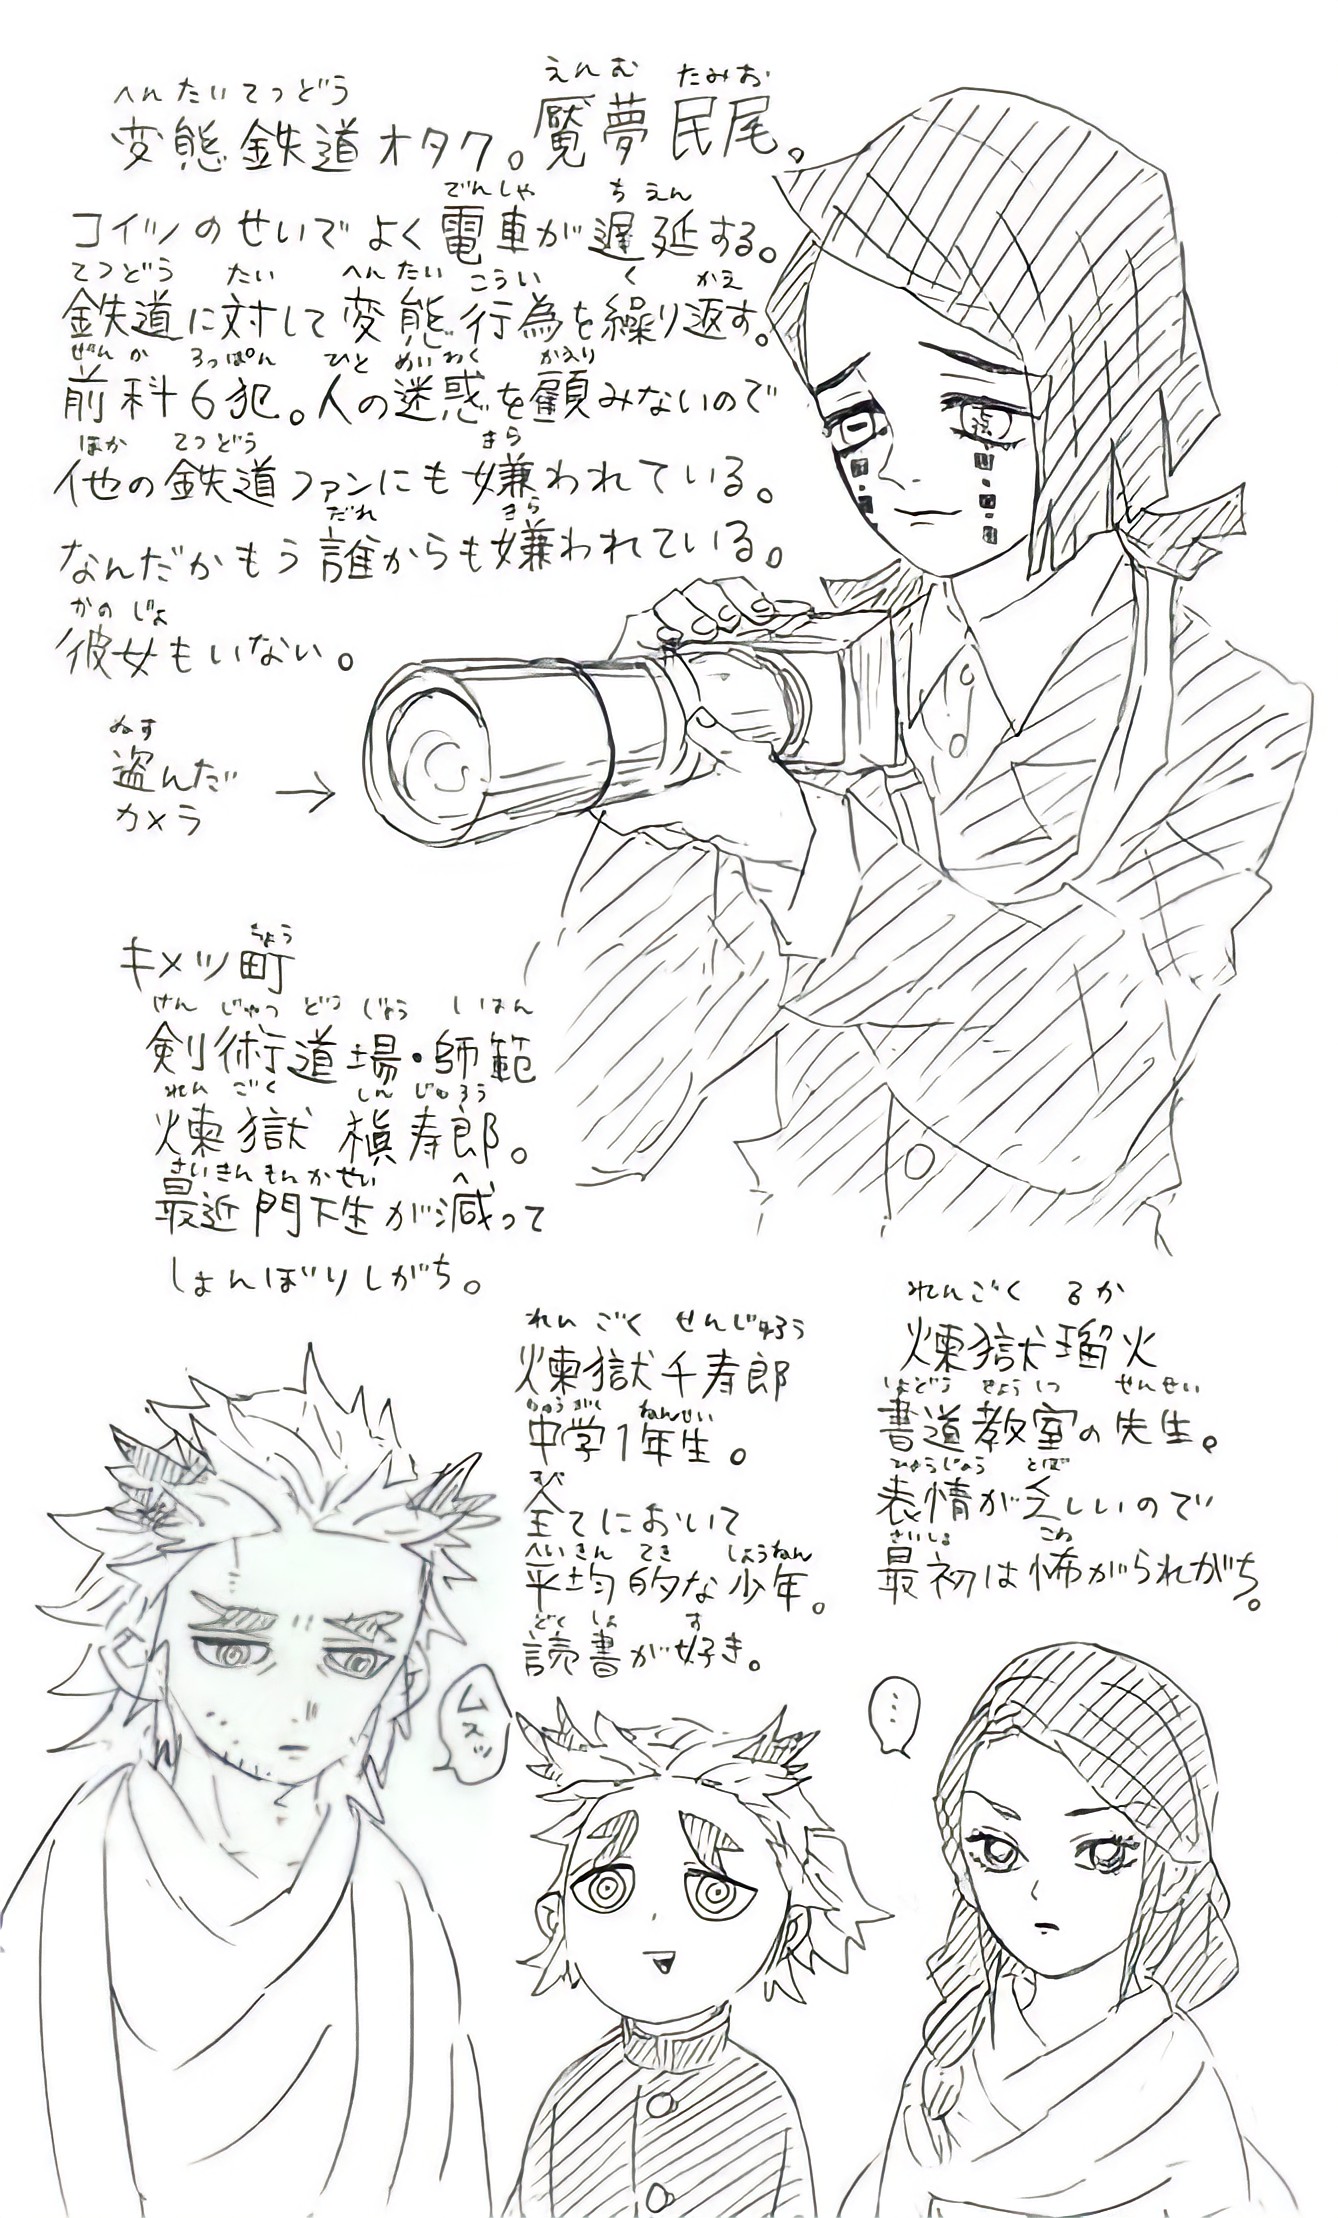 変態鉄道オタク。魘夢民尾。
コイツのせいでよく電車が遅延する。
鉄道に対して変態行為を繰り返す。
前科6犯。人の迷惑を顧みないので
他の鉄道ファンにも嫌われている。
なんだかもう誰からも嫌われている。
彼女もいない。
盗んだ
カメラ
→
キメツ町
剣術道場・師範
煉獄槇寿郎。
最近門下生が減って
しょんぼりしがち。
煉獄千寿郎
中学1年生。
全てにおいて
平均的な少年。
読書が好き。
煉獄瑠火
書道教室の先生。
表情が乏しいので
最初は怖がられがち。
ムスッ
…